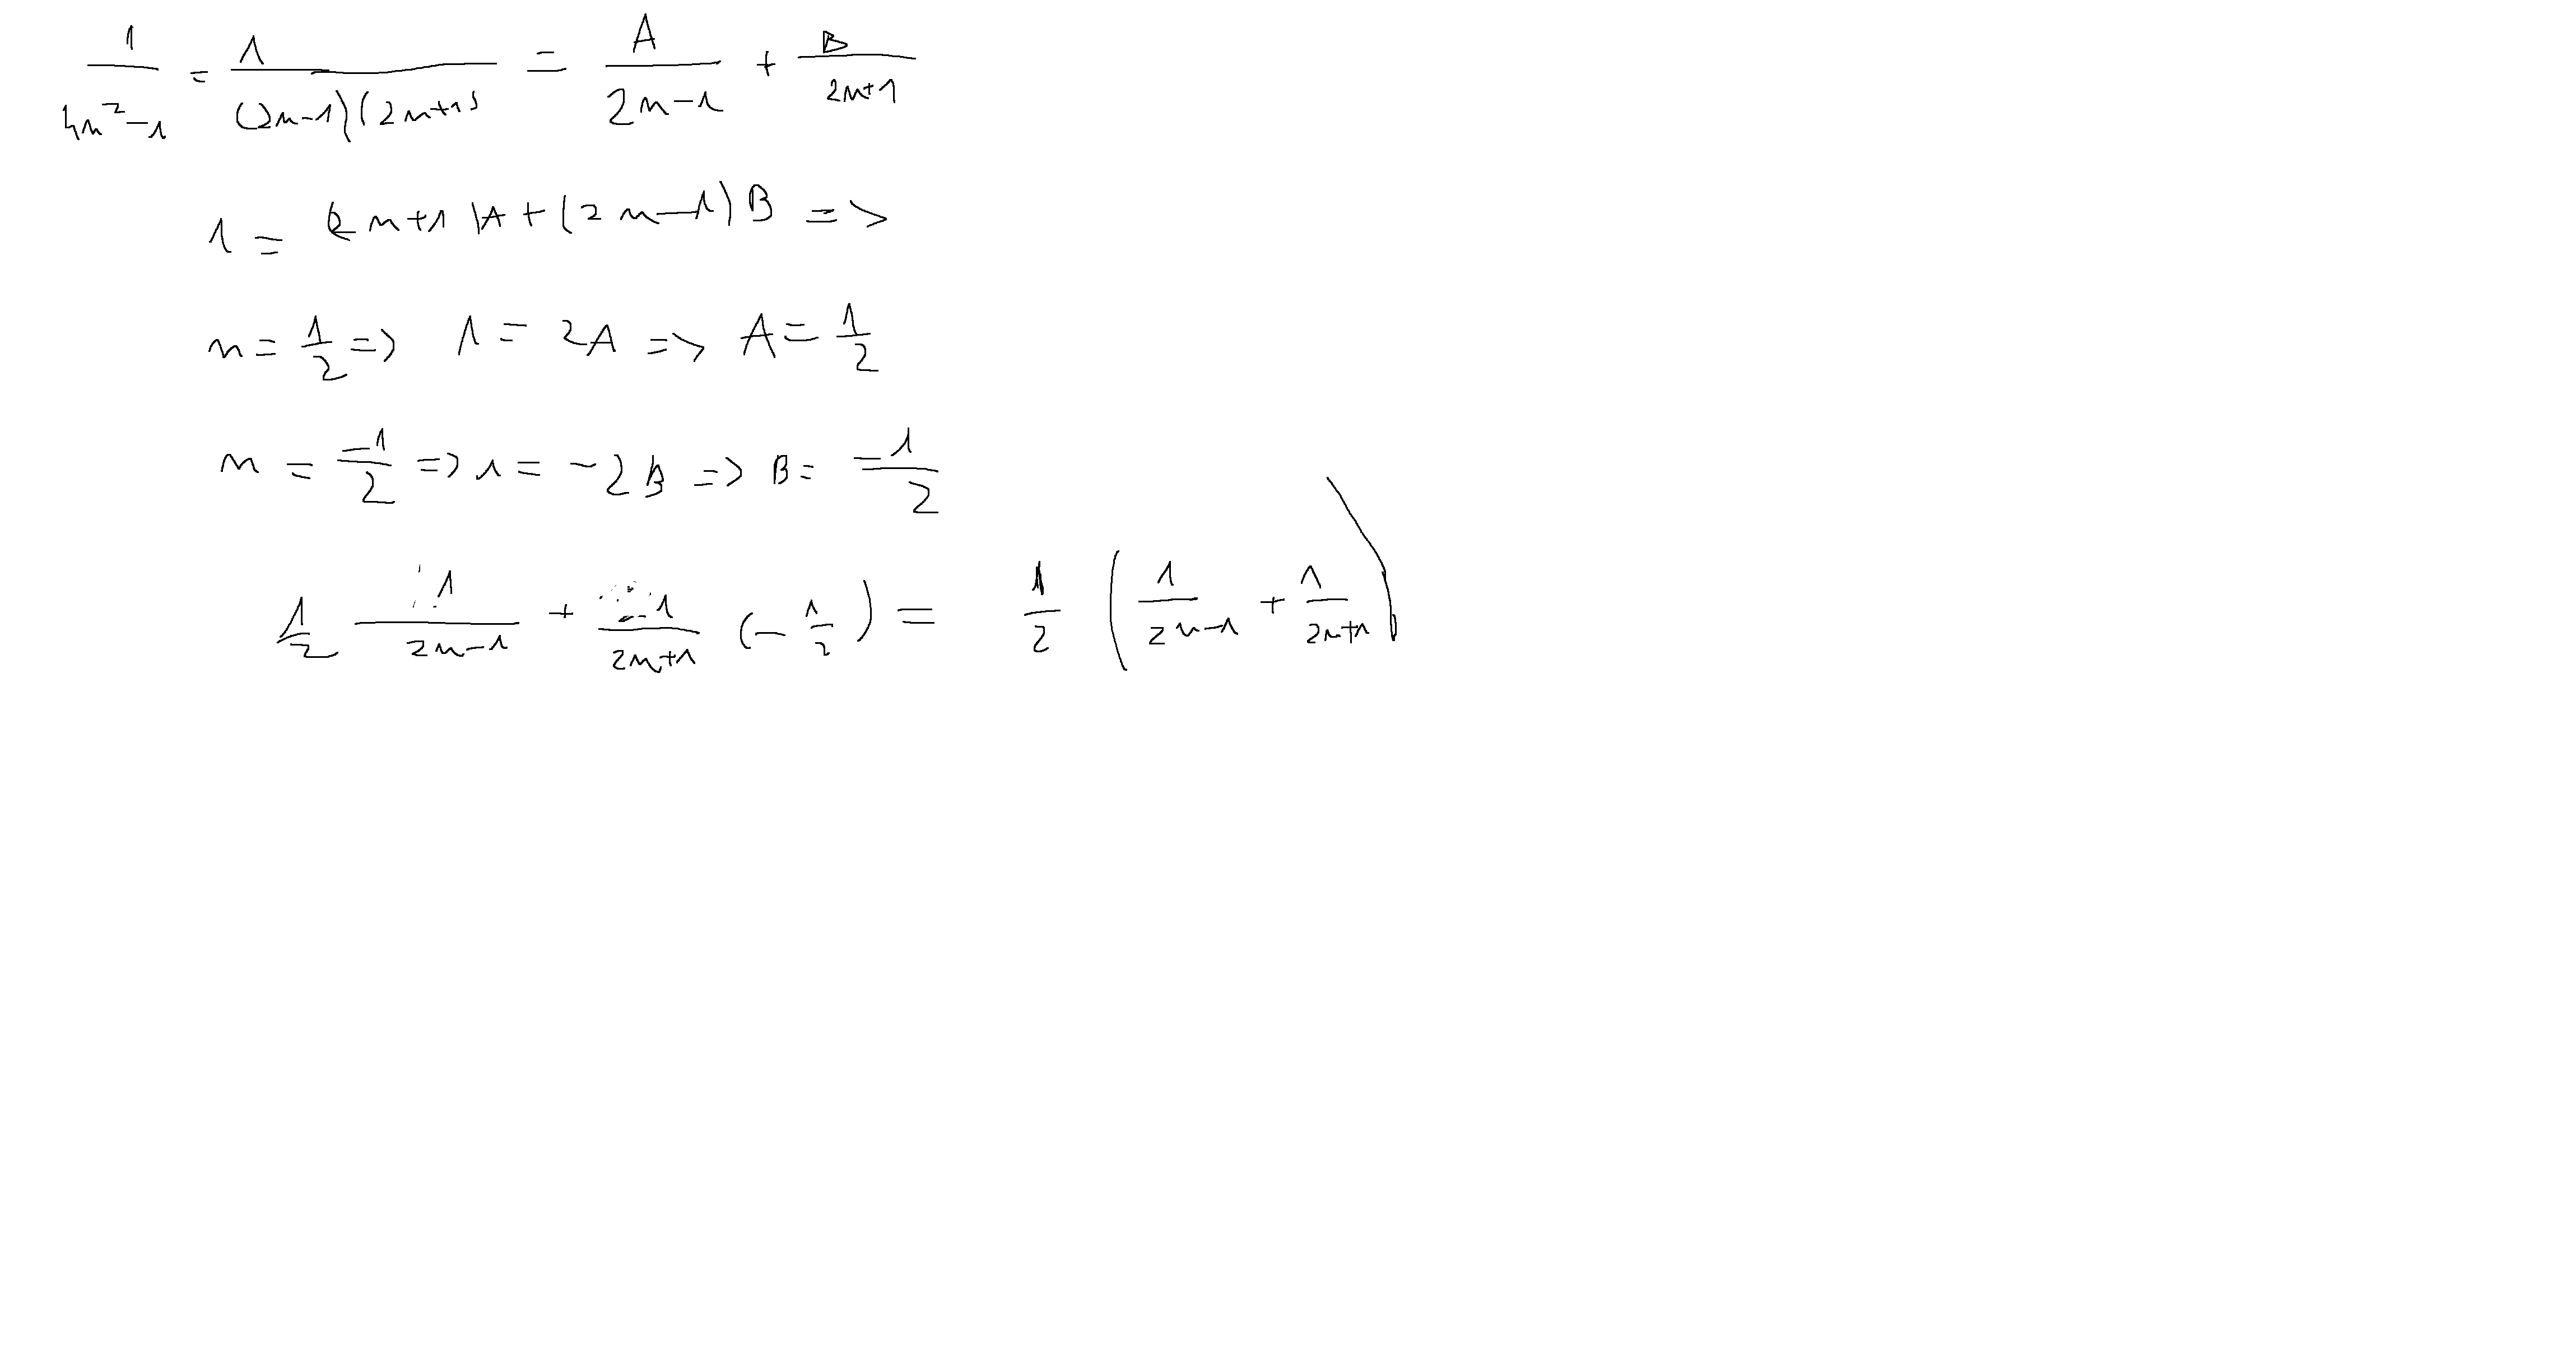 1/(4n²-1) = 1/((2n-1)(2n+1)) = A/(2n-1) + B/(2n+1)
1 = (2n+1)A + (2n-1)B =>
n = 1/2 => 1 = 2A => A = 1/2
n = -1/2 => 1 = -2B => B = -1/2
1/2 1/(2n-1) + 1/(2n+1) (-1/2) = 1/2 (1/(2n-1) + 1/(2n+1))